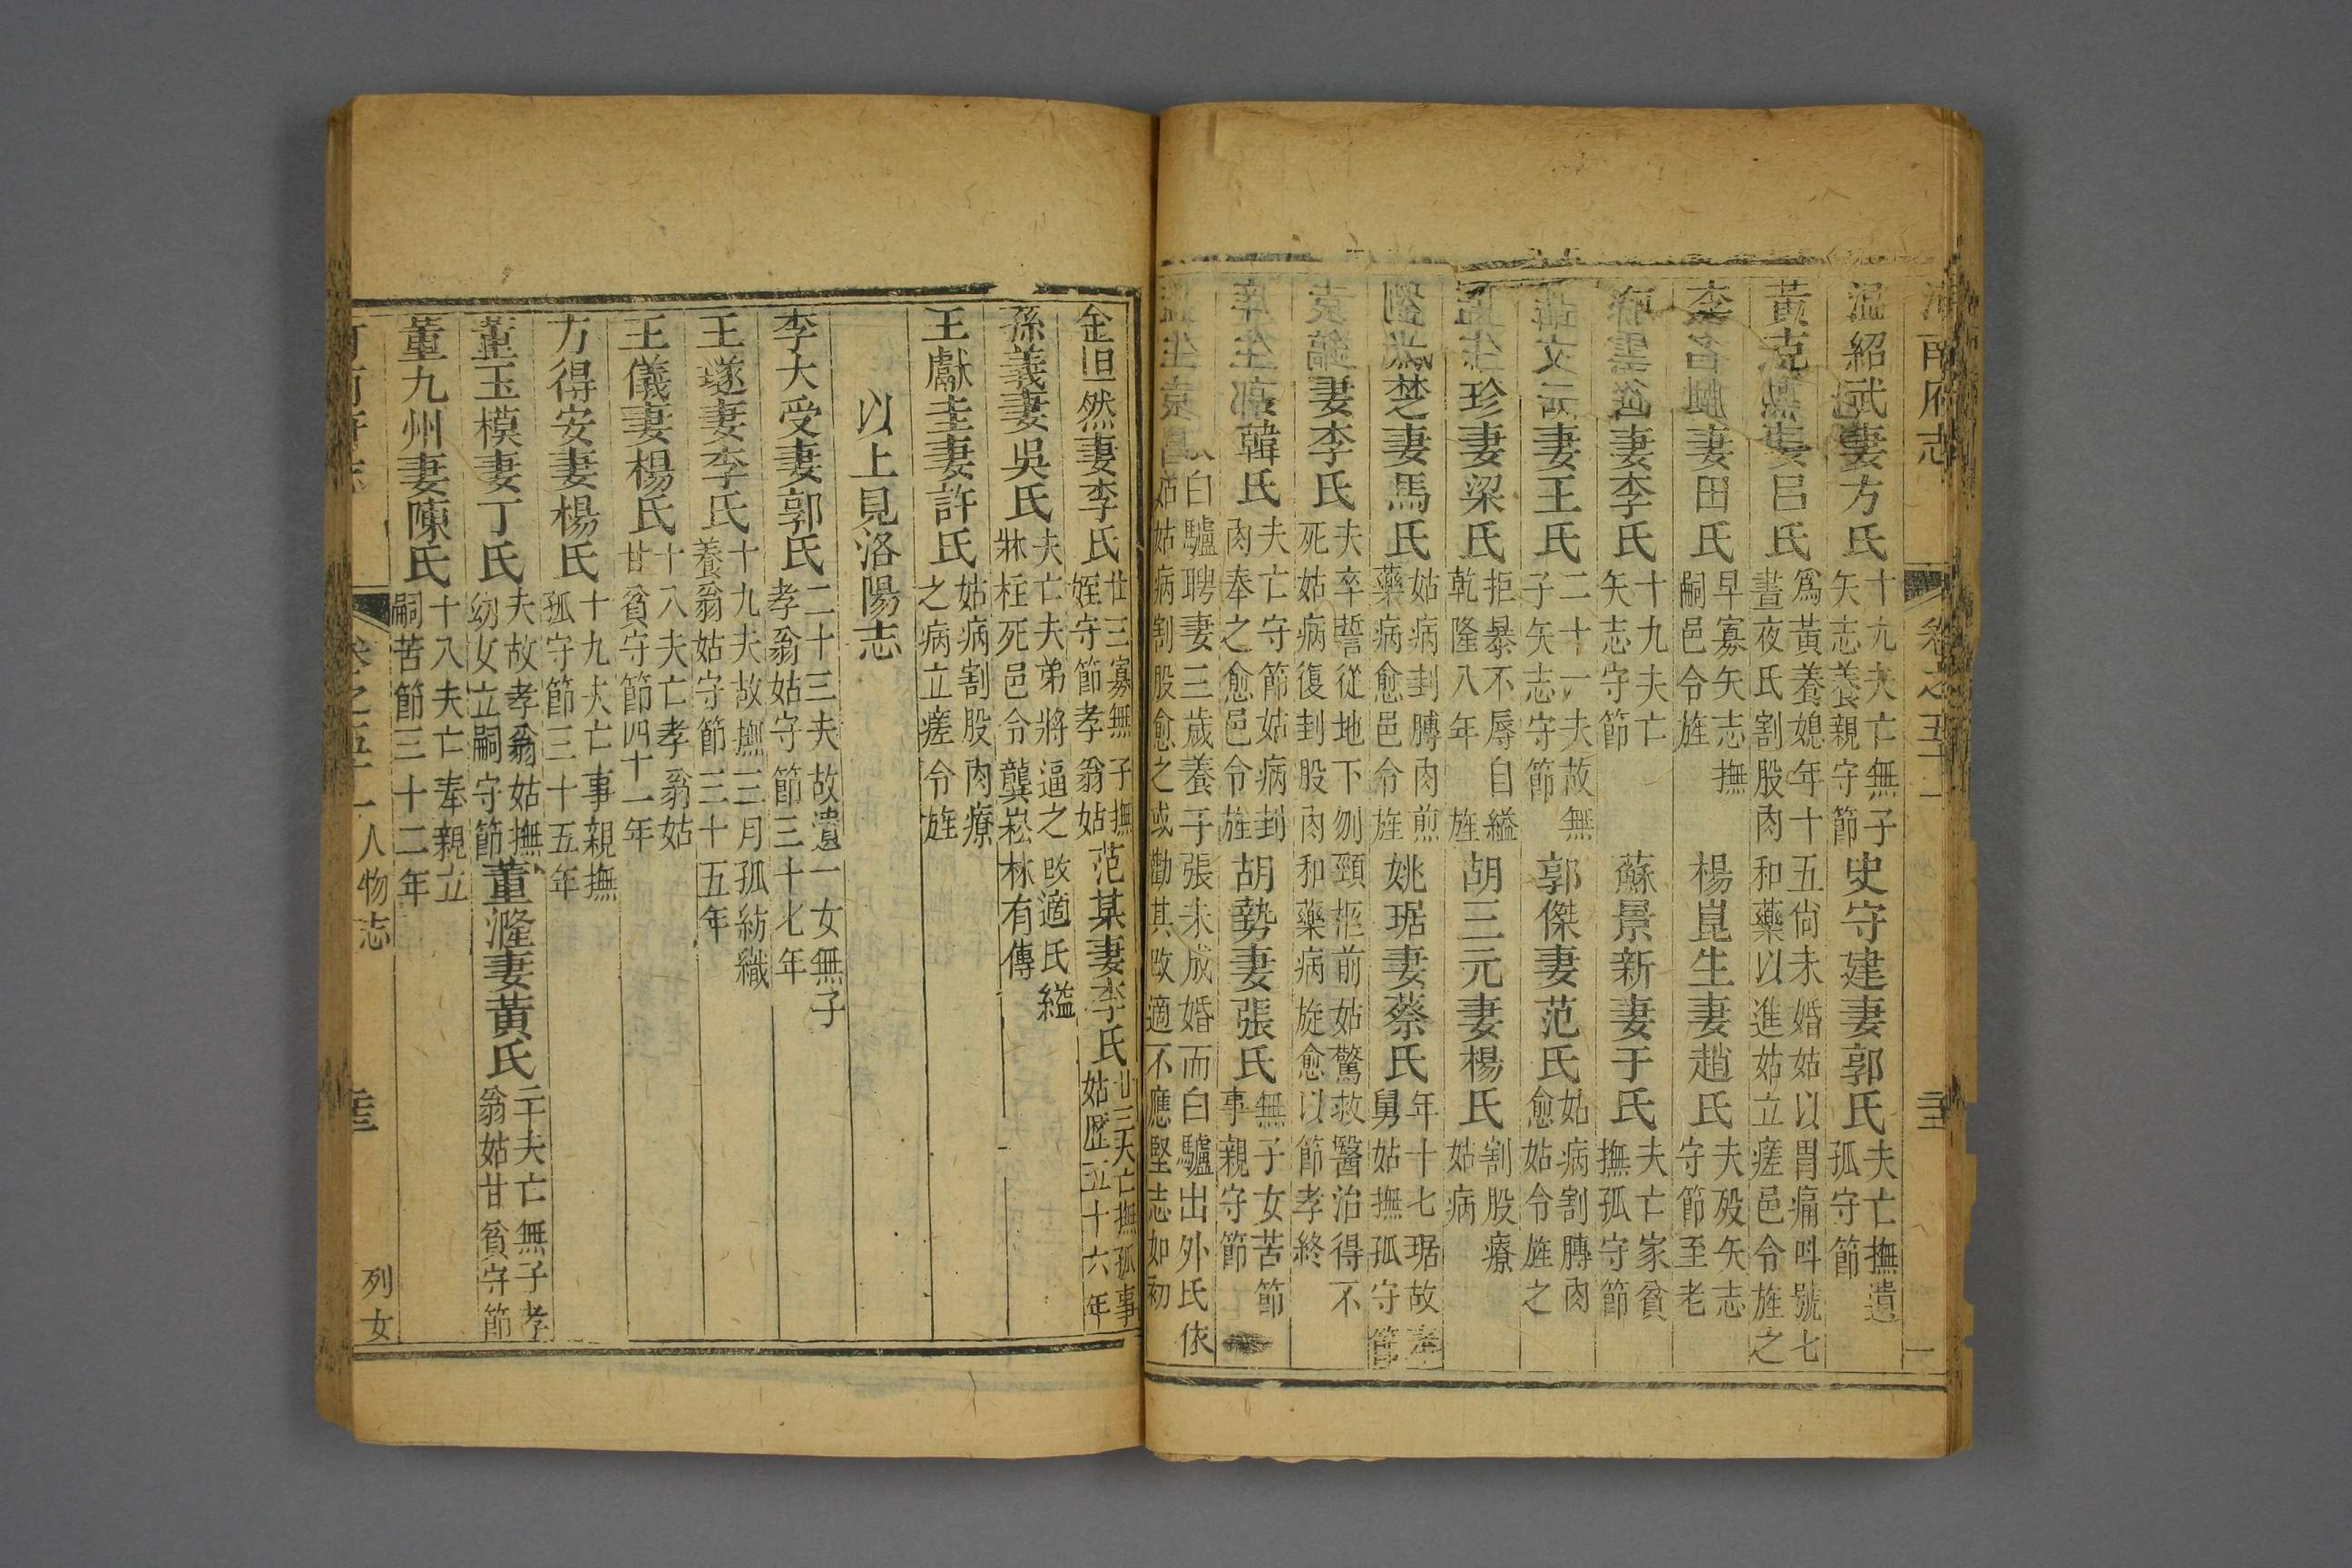 河南府志 卷之五十一
溫紹武妻方氏 十九夫亡無子矢志養親守節 史守建妻郭氏 夫亡撫遺孤守節
黃克 妻呂氏 爲黃養媳年十五尙未婚姑以胃痛呌號七晝夜氏割股肉和藥以進姑立瘥邑令旌之
李 妻田氏 早寡矢志撫嗣邑令旌 楊崑生妻趙氏 夫歿矢志守節至老
孫 妻李氏 十九夫亡矢志守節 蘇景新妻于氏 夫亡家貧撫孤守節
文元妻王氏 二十一夫故無子矢志守節 郭傑妻范氏 姑病割膊肉愈姑令旌之
珍妻梁氏 拒暴不辱自縊乾隆八年旌 胡三元妻楊氏 割股療姑病
劉 楚妻馬氏 姑病刲膊肉煎藥病愈邑令旌 姚琚妻蔡氏 年十七琚故奉舅姑撫孤守節
袁 妻李氏 夫卒誓從地下刎頸柩前姑驚救醫治得不死姑病復刲股肉和藥病旋愈以節孝終
韓氏 夫亡守節姑病刲肉奉之愈邑令旌 胡勢妻張氏 無子女苦節事親守節
白驢聘妻三歲養于張未成婚而白驢出外氏依姑姑病割股愈之或勸其改適不應堅志如初
金坦然妻李氏 廿三寡無子撫姪守節孝翁姑 范某妻李氏 廿三夫亡撫孤事姑歷五十六年
孫義妻吳氏 夫亡夫弟將逼之改適氏縊牀柱死邑令龔崧林有傳
王獻圭妻許氏 姑病割股肉療之病立瘥令旌
以上見洛陽志
李大受妻郭氏 二十三夫故遺一女無子孝翁姑守節三十七年
王璲妻李氏 十九夫故撫三月孤紡織養翁姑守節三十五年
王儀妻楊氏 十八夫亡孝翁姑甘貧守節四十一年
方得安妻楊氏 十九夫亡事親撫孤守節三十五年
董玉模妻丁氏 夫故孝翁姑撫幼女立嗣守節 董漋妻黃氏 二十夫亡無子孝翁姑甘貧守節
董九州妻陳氏 十八夫亡奉親立嗣苦節三十二年
人物志 列女